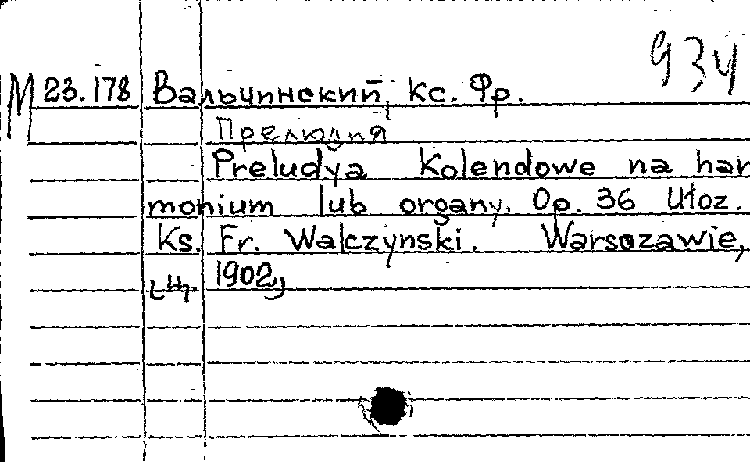 934
М 23.178 Вальчинский, Кс. Фр.
Прелюдия
Preludya Kolendowe na har
monium lub organy. Op. 36 Ułoz.
Ks. Fr. Walczynski. Warsazawie,
ц. 1902,